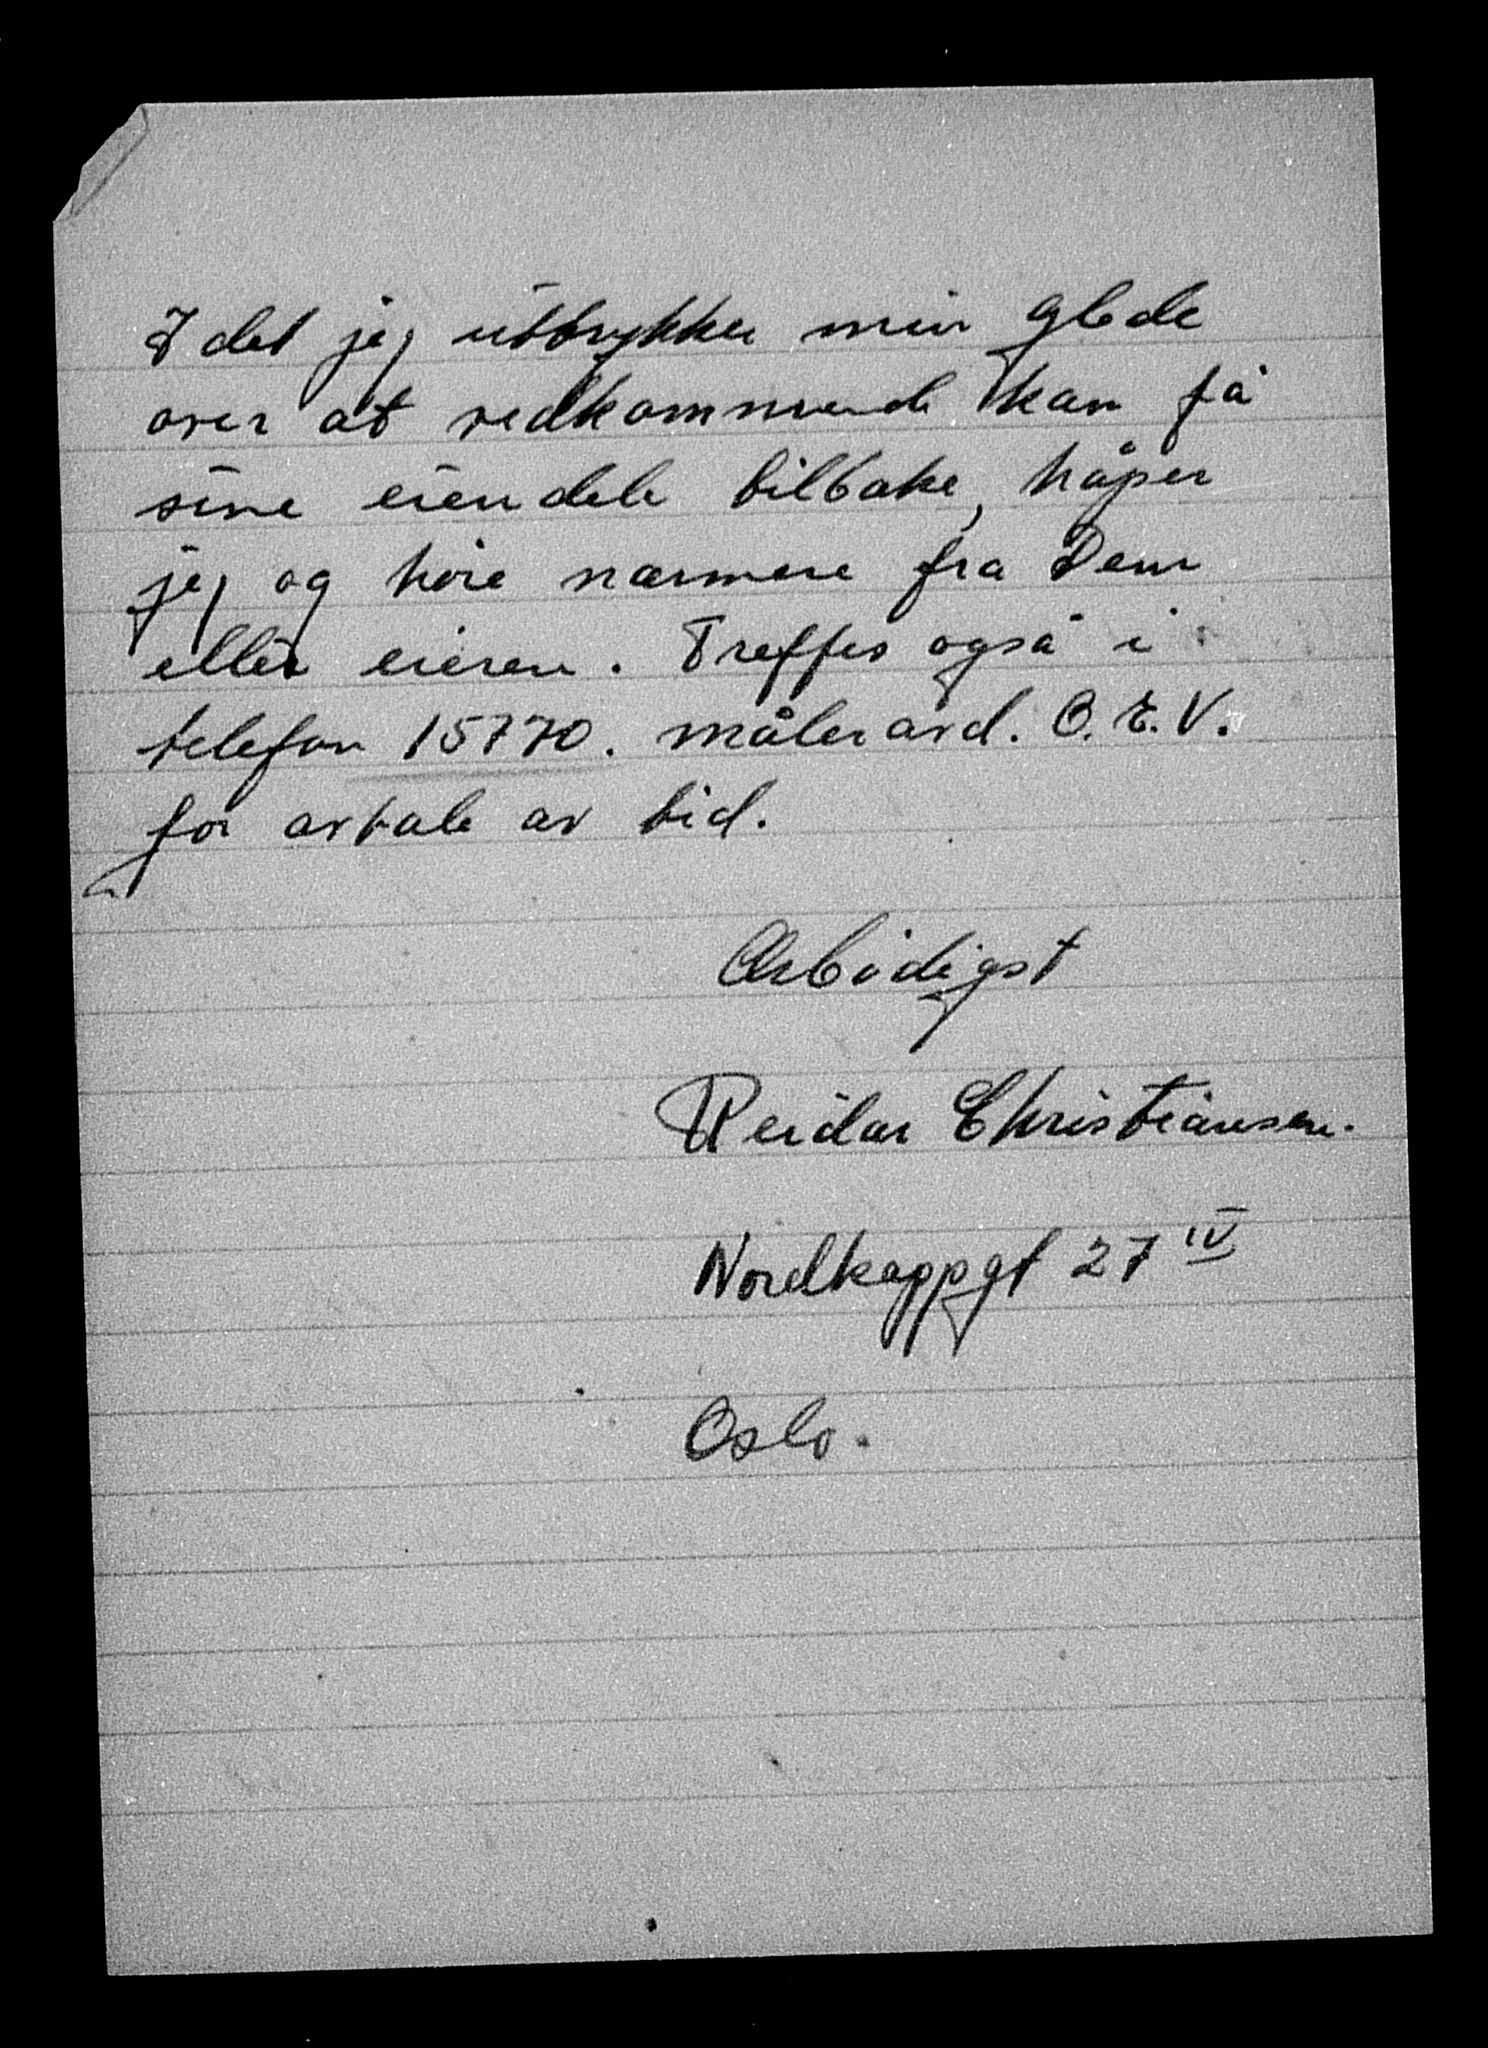 I det jeg uttrykker min glede
over at vedkommende kan få
sine eiendele tilbake, håper
jeg og høre nærmere fra Dem
eller eieren. Treffes også i
telefon 15770. måleravd. O.E.V.
for avtale av tid.
Ærbødigst
Reidar Christiansen.
Nordkappgt 27 IV
Oslo.